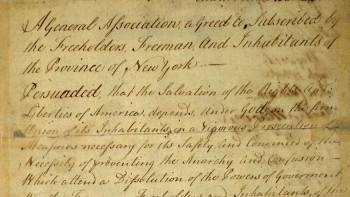 A General Association, agreed to, Subscribed by
the Freeholders, Freemen, And Inhabitants of
the Province of New York —
Persuaded, that the Salvation of the Rights and
Liberties of America, depends, Under God, on the firm
Union of its Inhabitants, in a Vigorous Prosecution of
Measures necessary for its Safety; and Convinced of the
Necessity of preventing the Anarchy and Confusion
Which attend a Dissolution of the Powers of Government,
We the Freemen, Freeholders and Inhabitants, of the